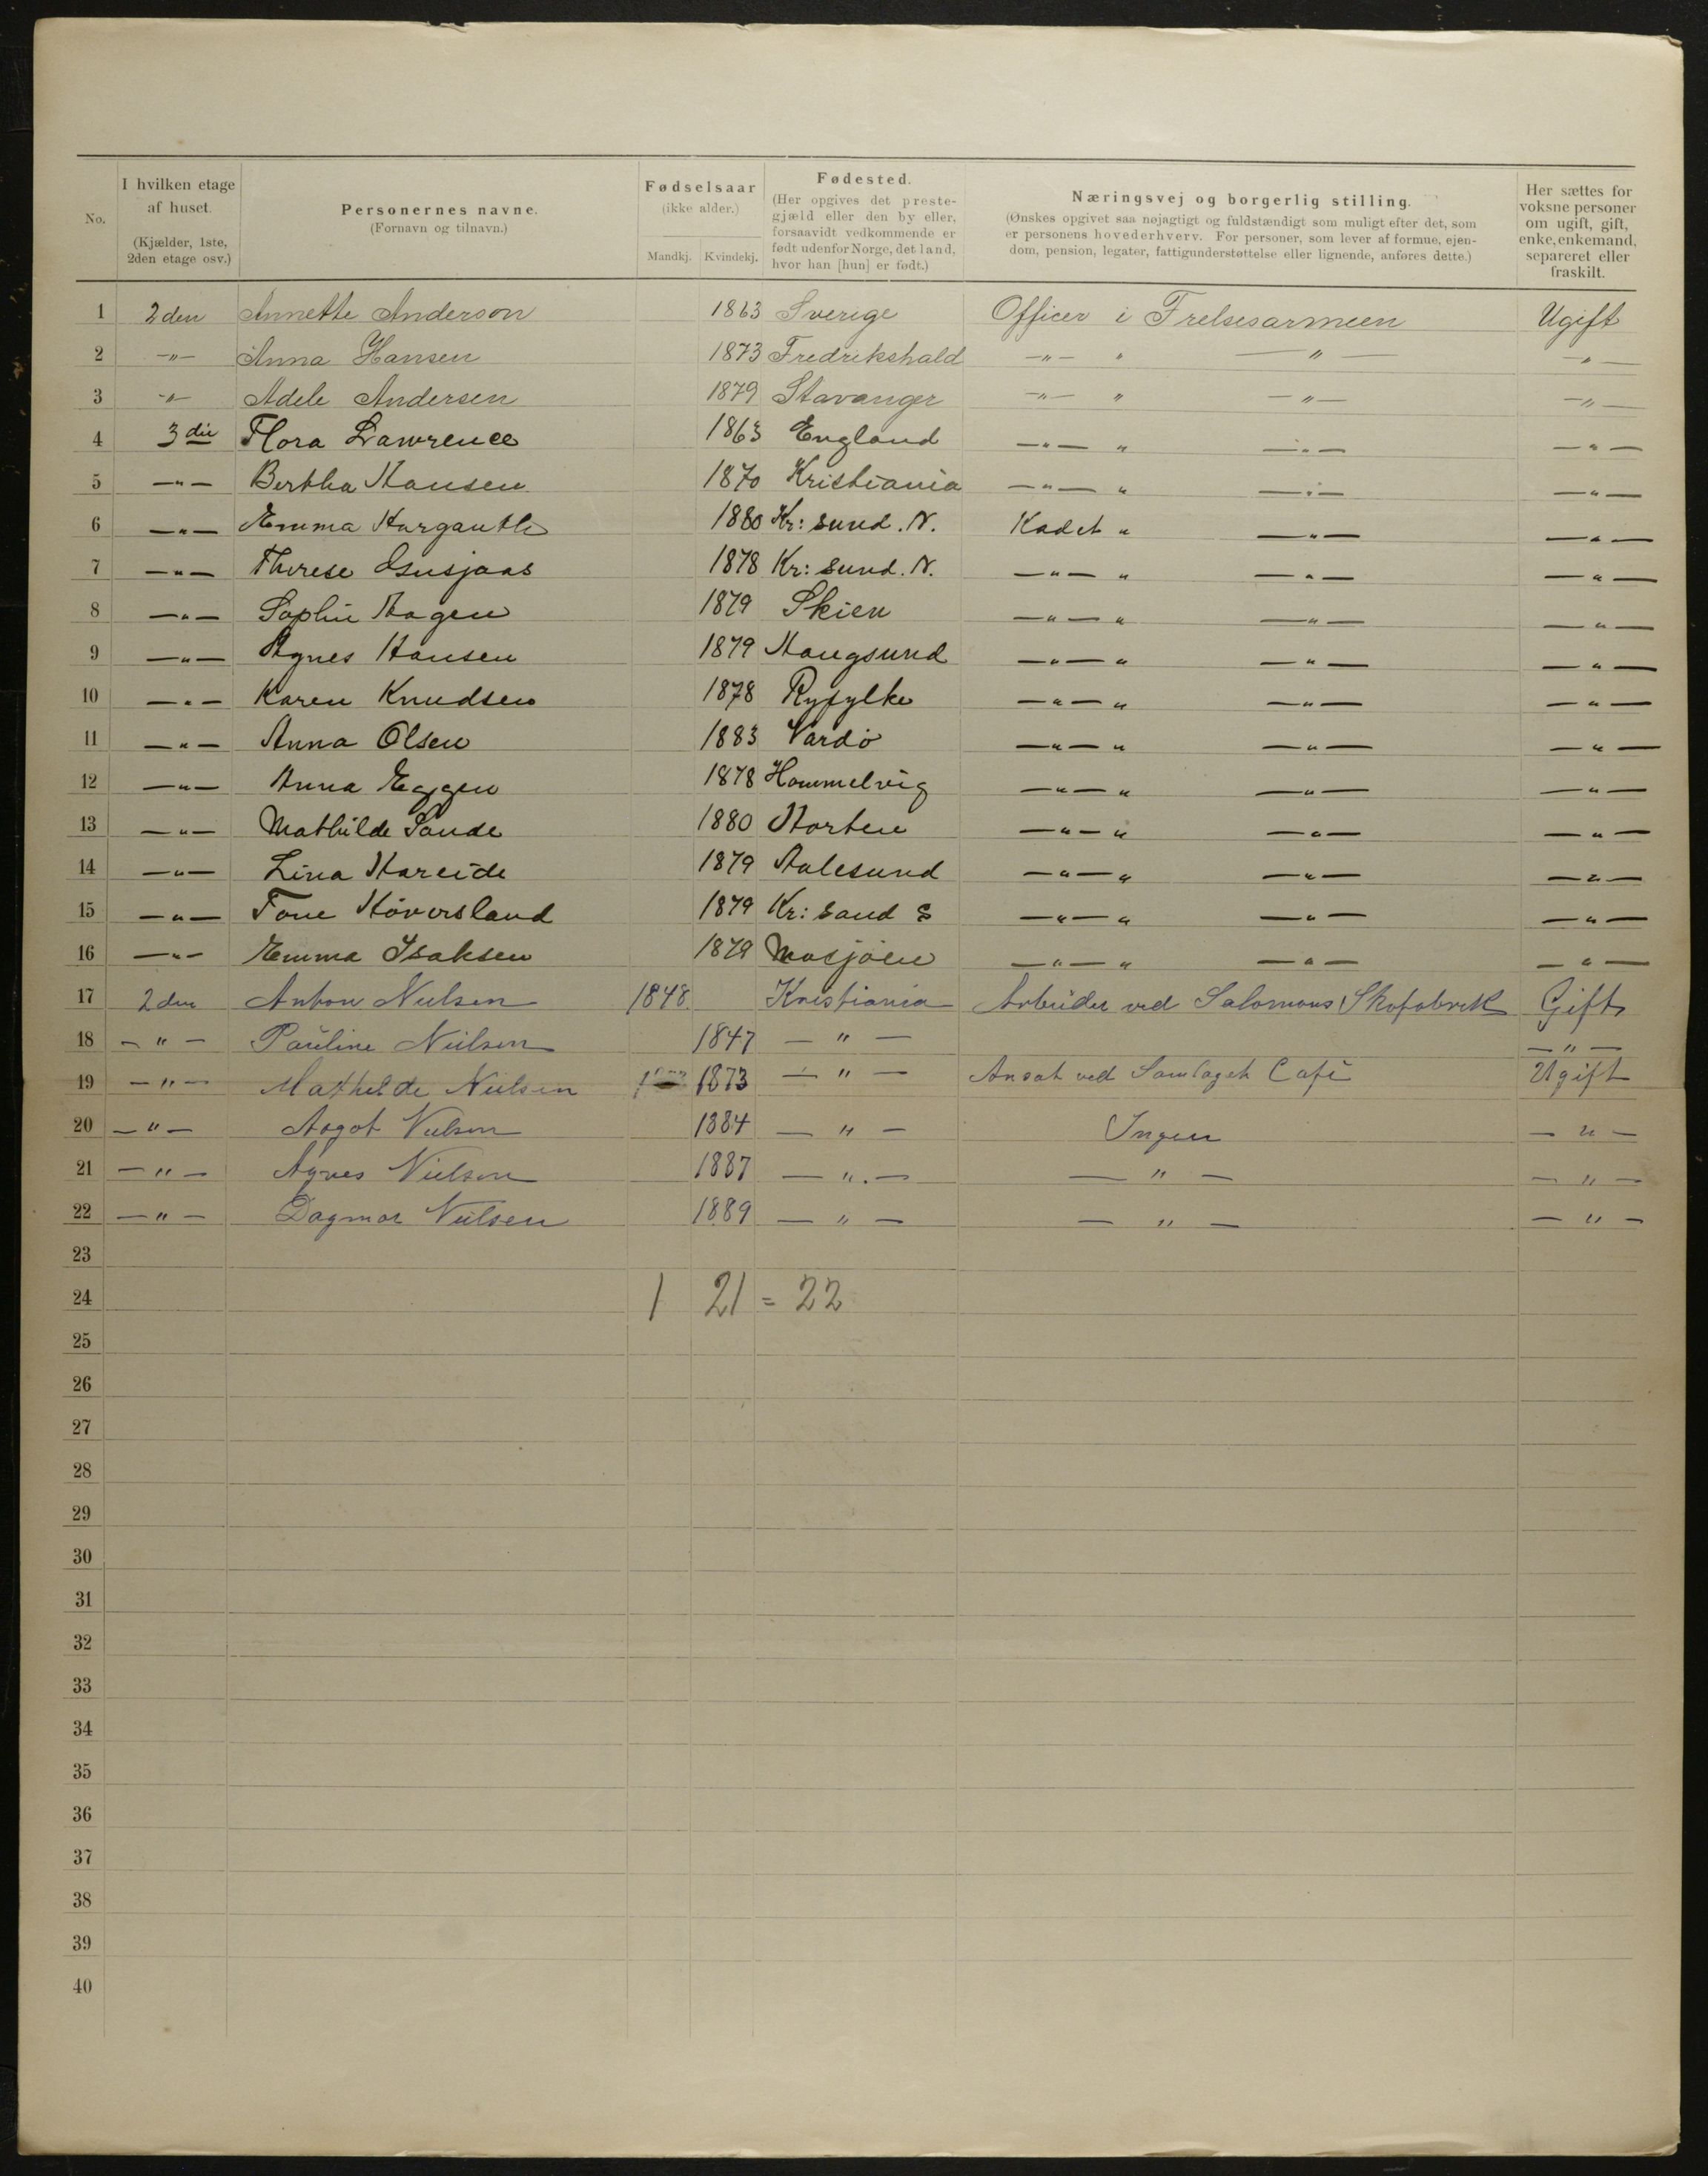 No.
I hvilken etage af huset. (Kjælder, 1ste, 2den etage osv.)
Personernes navne. (Fornavn og tilnavn.)
Fødselsaar (ikke alder.) Mandkj. Kvindekj.
Fødested. (Her opgives det prestegjæld eller den by eller, forsaavidt vedkommende er født udenfor Norge, det land, hvor han [hun] er født.)
Næringsvej og borgerlig stilling. (Ønskes opgivet saa nøjagtigt og fuldstændigt som muligt efter det, som er personens hovederhverv. For personer, som lever af formue, ejendom, pension, legater, fattigunderstøttelse eller lignende, anføres dette.)
Her sættes for voksne personer om ugift, gift, enke, enkemand, separeret eller fraskilt.
1 2den Annette Anderson 1863 Sverige Officer i Frelsesarmeen Ugift
2 -"- Anna Hansen 1873 Fredrikshald -"- " -"- -"-
3 -"- Adele Andersen 1879 Stavanger -"- " -"- -"-
4 3die Flora Lawrence 1863 England -"- " -"- -"-
5 -"- Bertha Hansen 1870 Kristiania -"- " -"- -"-
6 -"- Emma 1880 Kr: sund. N. Kadet " -"- -"-
7 -"- Therese 1878 Kr: sund. N. -"- " -"- -"-
8 -"- Sophie Hagen 1879 Skien -"- " -"- -"-
9 -"- Agnes Hansen 1879 Haugsund -"- " -"- -"-
10 -"- Karen Knudsen 1878 Ryfylke -"- " -"- -"-
11 -"- Anna Olsen 1883 Vardö -"- " -"- -"-
12 -"- Anna Eggen 1878 Hommelvig -"- " -"- -"-
13 -"- Mathilde Sande 1880 Horten -"- " -"- -"-
14 -"- Lina Hareide 1879 Aalesund -"- " -"- -"-
15 -"- Tone Höversland 1879 Kr: sand S -"- " -"- -"-
16 -"- Emma Isaksen 1879 Mosjöen -"- " -"- -"-
17 2den Anton Nielsen 1848. Kristiania Arbeider ved Salomons Skofabrik Gift
18 -"- Pauline Nielsen 1847 -"- -"-
19 -"- Mathilde Nielsen 1873 -"- Ansat ved Samlagets Café Ugift
20 -"- Aagot Nielsen 1884 -"- Ingen -"-
21 -"- Agnes Nielsen 1887 -"- -"- -"-
22 -"- Dagmar Nielsen 1889 -"- -"- -"-
23
24 1 21 = 22
25
26
27
28
29
30
31
32
33
34
35
36
37
38
39
40